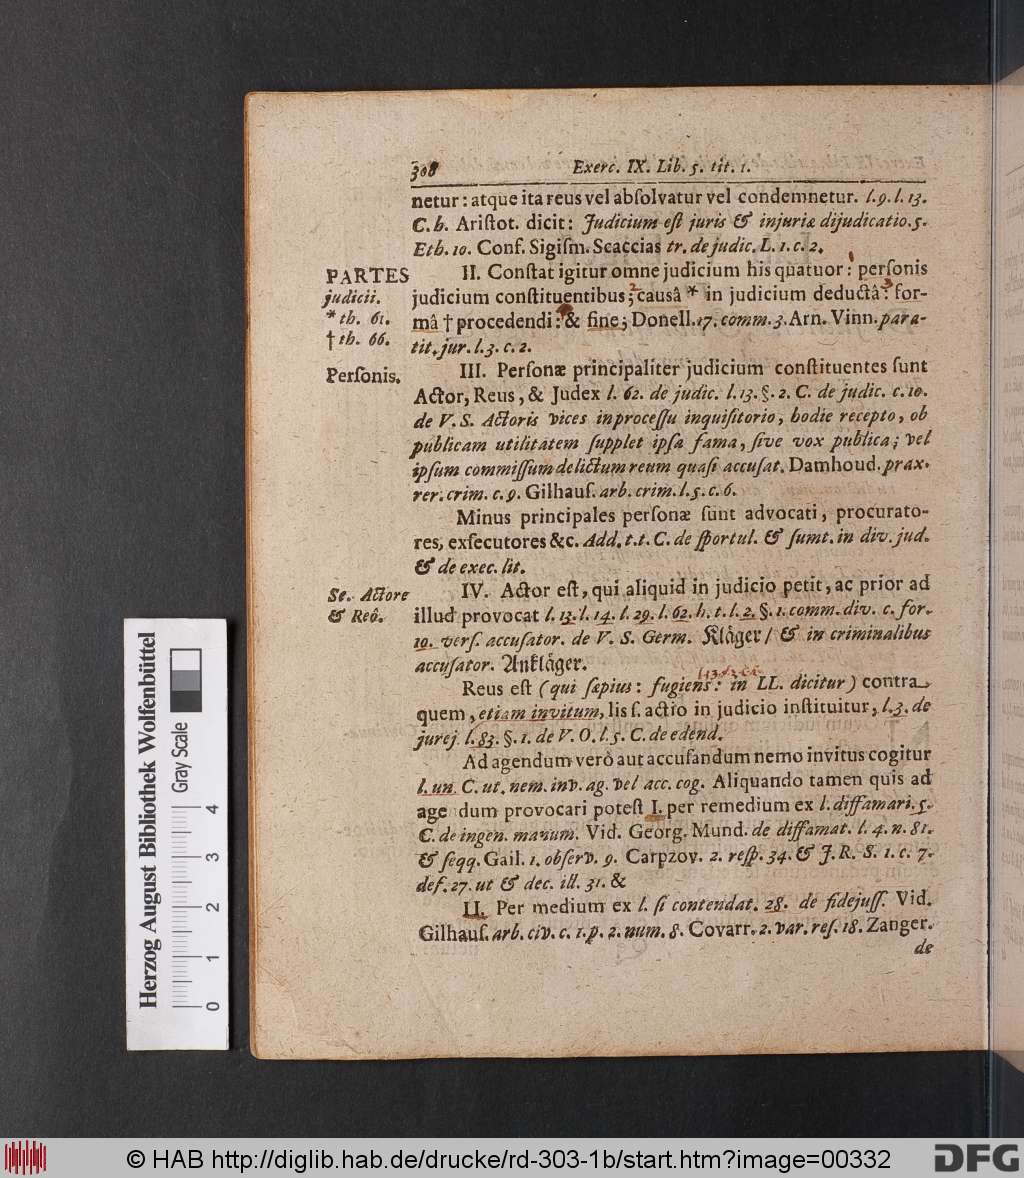 308 Exerc. IX. Lib. 5. tit. 1.
netur: atque ita reus vel abſolvatur vel condemnetur. l. 9. l. 13.
C. h. Ariſtot. dicit: Judicium eſt juris & injuriæ dijudicatio. 5.
Eth. 10. Conf. Sigiſm. Scaccias tr. de judic. L. 1. c. 2.
PARTES
judicii.
* th. 61.
† th. 66.
II. Conſtat igitur omne judicium his quatuor: perſonis
judicium conſtituentibus; cauſâ * in judicium deductâ: for-
mâ † procedendi: & fine; Donell. 17. comm. 3. Arn. Vinn. para-
tit. jur. l. 3. c. 2.
Perſonis.
III. Perſonæ principaliter judicium conſtituentes ſunt
Actor, Reus, & Judex l. 62. de judic. l. 13. §. 2. C. de judic. c. 10.
de V. S. Actoris vices in proceſſu inquiſitorio, hodie recepto, ob
publicam utilitatem ſupplet ipſa fama, ſive vox publica; vel
ipſum commiſſum delictum reum quaſi accuſat. Damhoud. prax.
rer. crim. c. 9. Gilhauſ. arb. crim. l. 5. c. 6.
Minus principales perſonæ ſunt advocati, procurato-
res, exſecutores &c. Add. t. t. C. de ſportul. & ſumt. in div. jud.
& de exec. lit.
Se. Actore
& Reô.
IV. Actor eſt, qui aliquid in judicio petit, ac prior ad
illud provocat l. 13. l. 14. l. 29. l. 62. h. t. l. 2. §. 1. comm. div. c. for.
10. verſ. accuſator. de V. S. Germ. Kläger / & in criminalibus
accuſator. Ankläger.
Reus eſt (qui ſæpius: fugiens: in LL. dicitur) contra
quem, etiam invitum, lis ſ. actio in judicio inſtituitur, l. 3. de
jurej. l. 83. §. 1. de V. O. l. 5. C. de edend.
Ad agendum verò aut accuſandum nemo invitus cogitur
l. un. C. ut. nem. inv. ag. vel acc. cog. Aliquando tamen quis ad
age dum provocari poteſt I. per remedium ex l. diffamari. 5.
C. de ingen. manum. Vid. Georg. Mund. de diffamat. l. 4. n. 81.
& ſeqq. Gail. 1. obſerv. 9. Carpzov. 2. reſp. 34. & J. R. S. 1. c. 7.
def. 27. ut & dec. ill. 31. &
II. Per medium ex l. ſi contendat. 28. de fidejuſſ. Vid.
Gilhauſ. arb. civ. c. 1. p. 2. num. 8. Covarr. 2. var. reſ. 18. Zanger.
de
Herzog August Bibliothek Wolfenbüttel
Gray Scale
0 1 2 3 4
© HAB http://diglib.hab.de/drucke/rd-303-1b/start.htm?image=00332
DFG